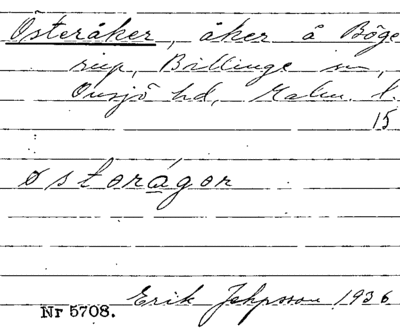 Österåker, åker å Böge
rup, Billinge sn,
Onsjö hd, Malm. l.
15
østorágor
Erik Jeppsson 1936
Nr 5708.